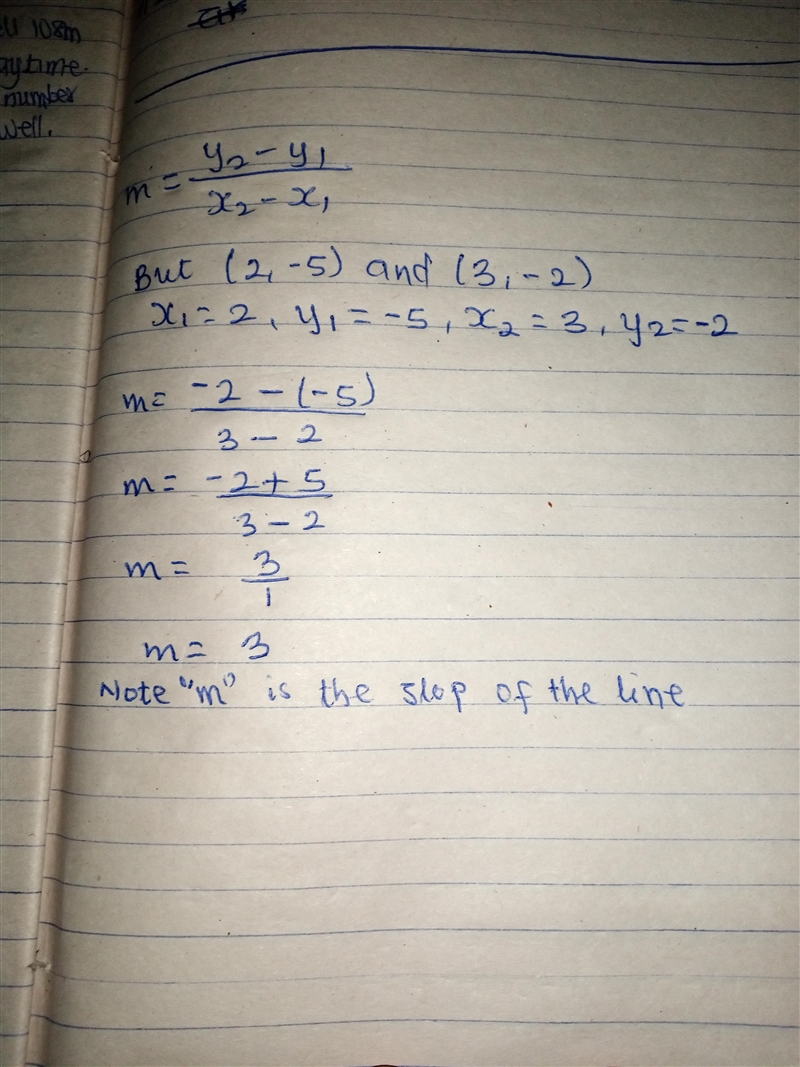 108m
aytime.
number
well.
m = y₂ - y₁ / x₂ - x₁
But (2, -5) and (3, -2)
x₁ = 2, y₁ = -5, x₂ = 3, y₂ = -2
m = -2 - (-5) / 3 - 2
m = -2 + 5 / 3 - 2
m = 3 / 1
m = 3
Note "m" is the slop of the line